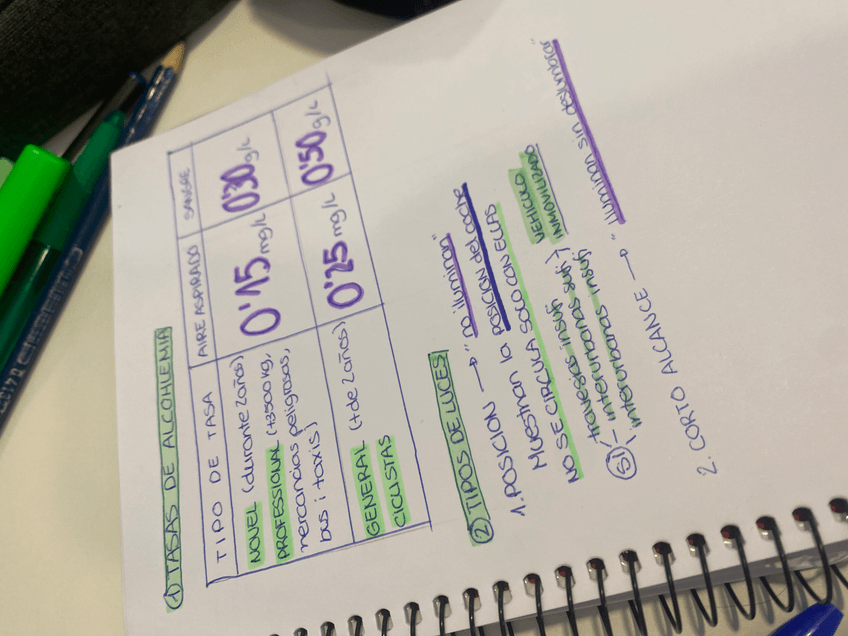 ① TASAS DE ALCOHLEMIA
TIPO DE TASA AIRE ASPIRADO SANGRE
NOVEL (durante 2 años) 0'15 mg/L 0'30 g/L
PROFESSIONAL (+3500 kg,
mercancias peligrosas,
bus i taxis)
GENERAL (+ de 2 años) 0'25 mg/L 0'50 g/L
CICLISTAS
② TIPOS DE LUCES
1. POSICION → "no iluminan"
Muestran la POSICION del coche
NO SE CIRCULA SOLO CON ELLAS
travesias insuf VEHICULO
SI interurbanas INMOVILIZADO
2. CORTO ALCANCE → "iluminan sin deslumbrar"